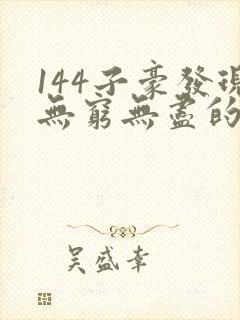 144子豪發現
無窮無盡的
吳盛幸